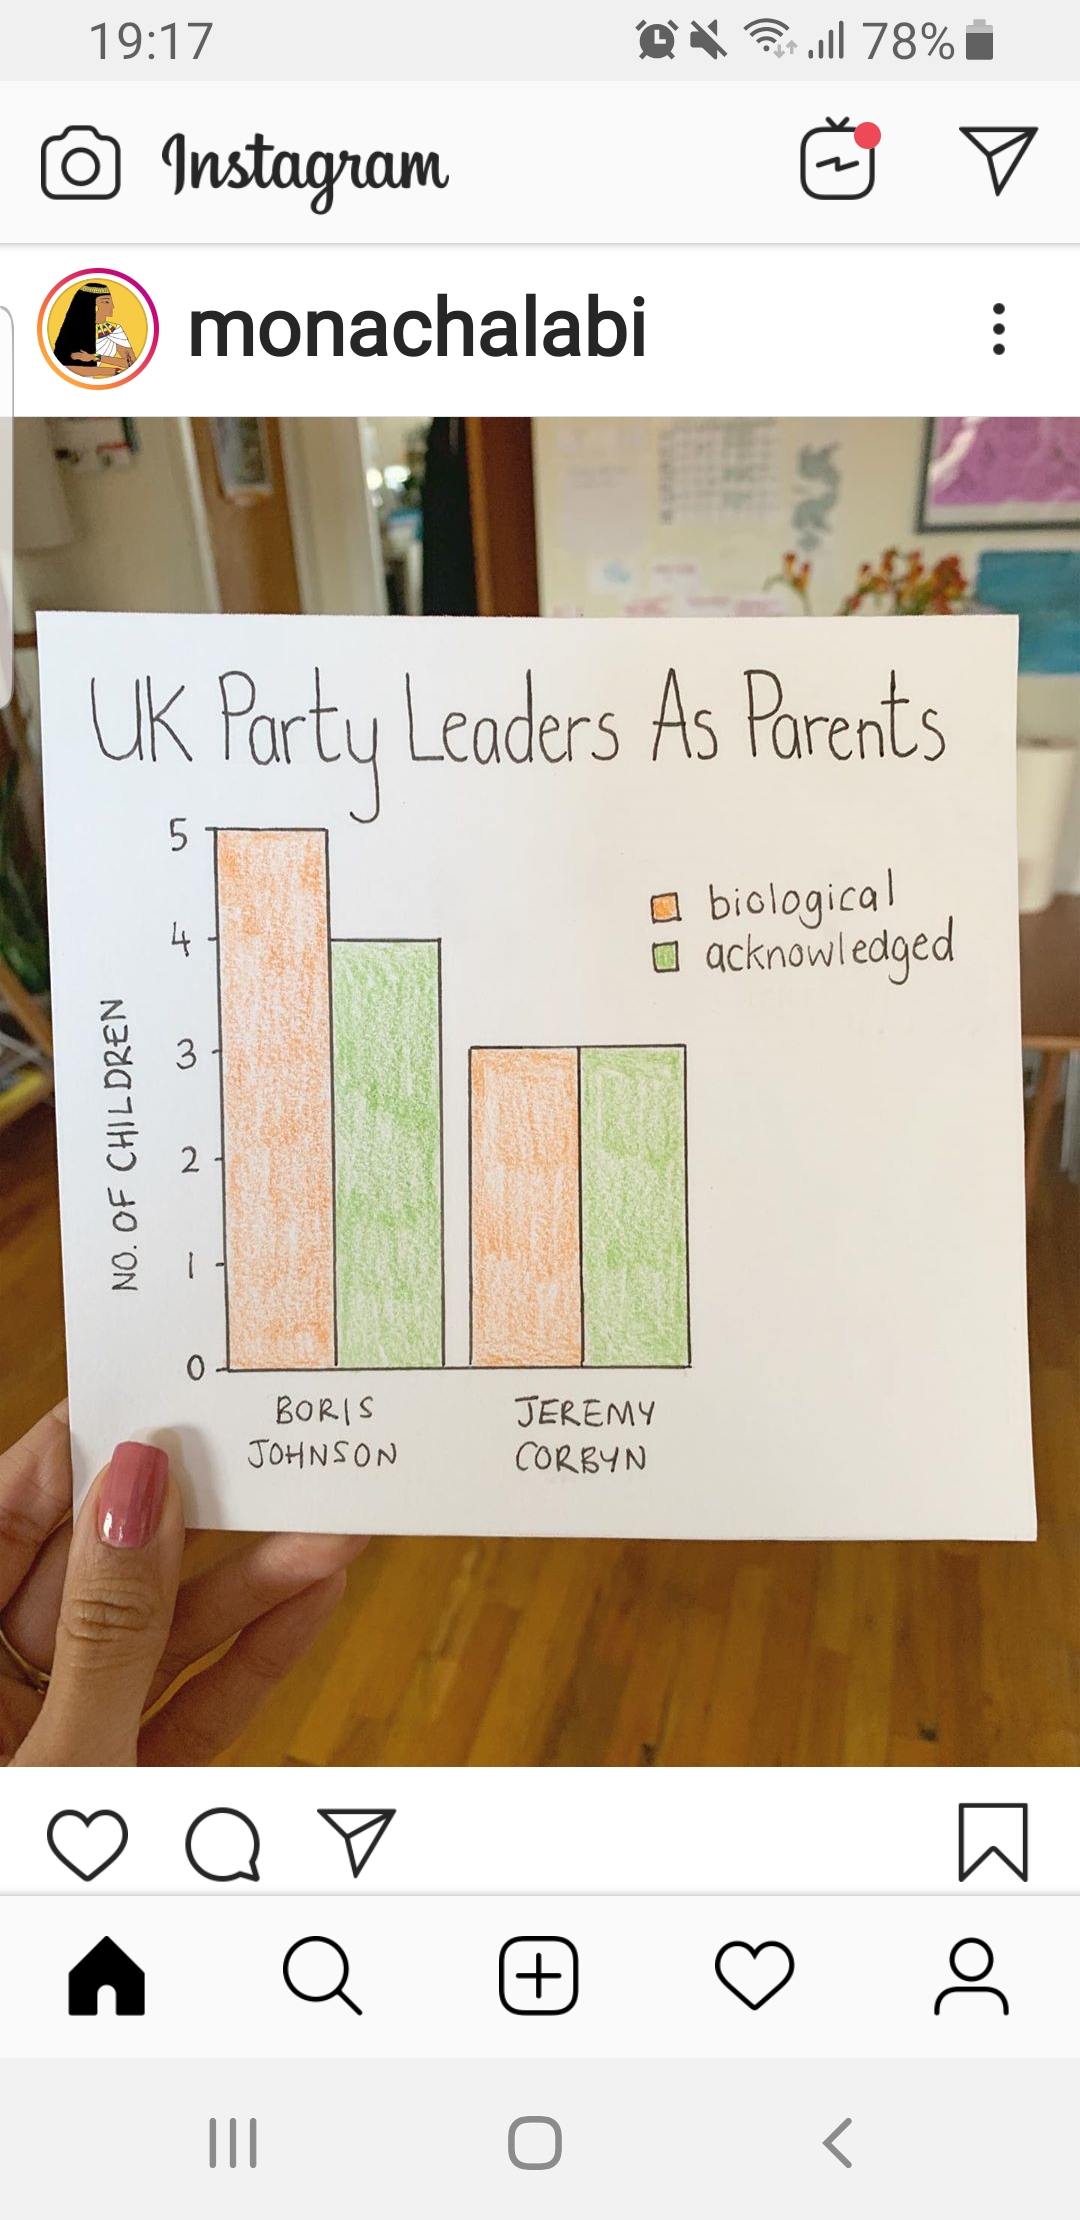 19:17 78%
Instagram
monachalabi
UK Party Leaders As Parents
5
biological
4
acknowledged
3
2
1
0
NO. OF CHILDREN
BORIS
JOHNSON
JEREMY
CORBYN